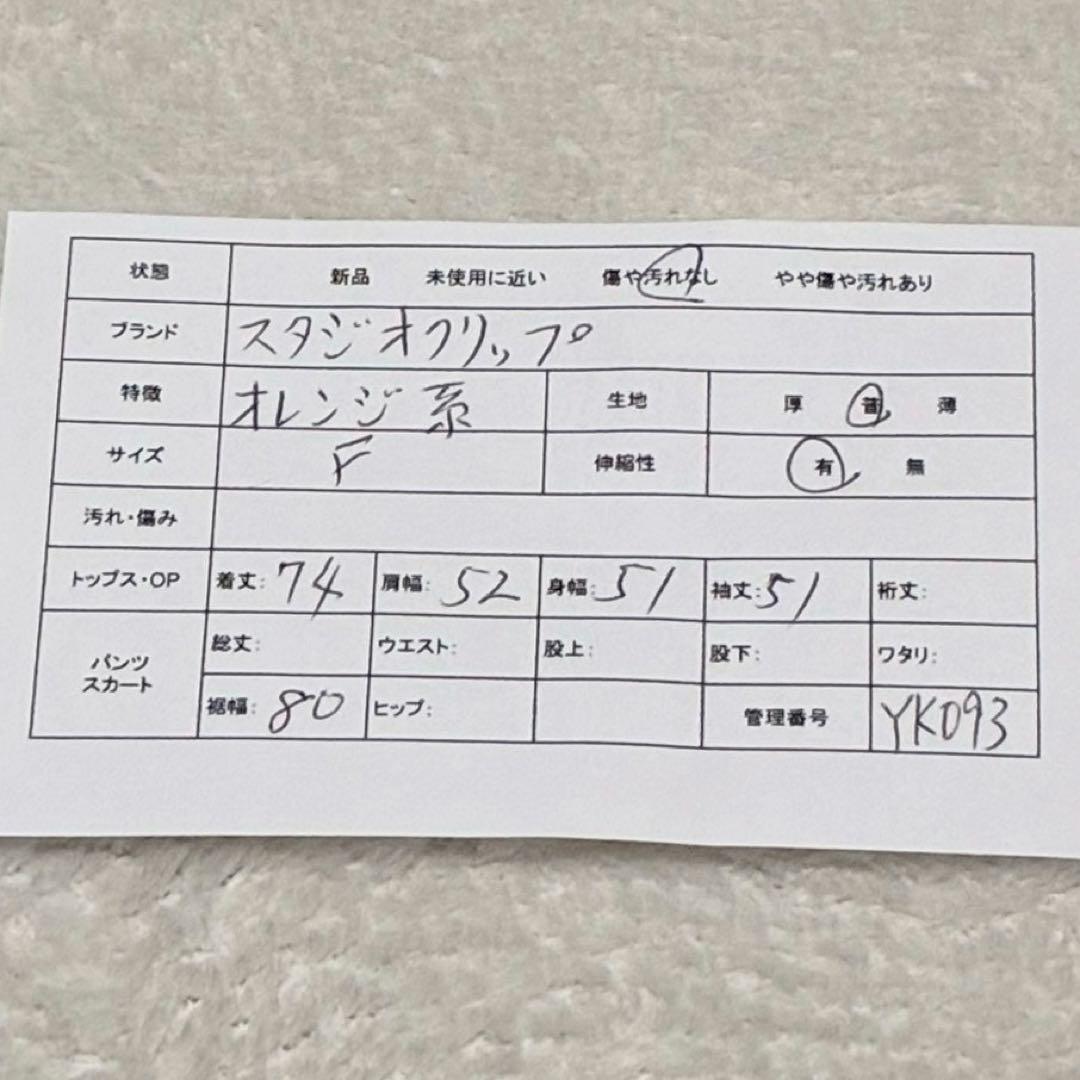 状態 新品 未使用に近い 傷や汚れなし やや傷や汚れあり
ブランド スタジオクリップ
特徴 オレンジ系 生地 厚 普 薄
サイズ F 伸縮性 有 無
汚れ・傷み
トップス・OP 着丈: 74 肩幅: 52 身幅: 51 袖丈: 51 裄丈:
パンツ スカート 総丈: ウエスト: 股上: 股下: ワタリ:
裾幅: 80 ヒップ: 管理番号 YK093